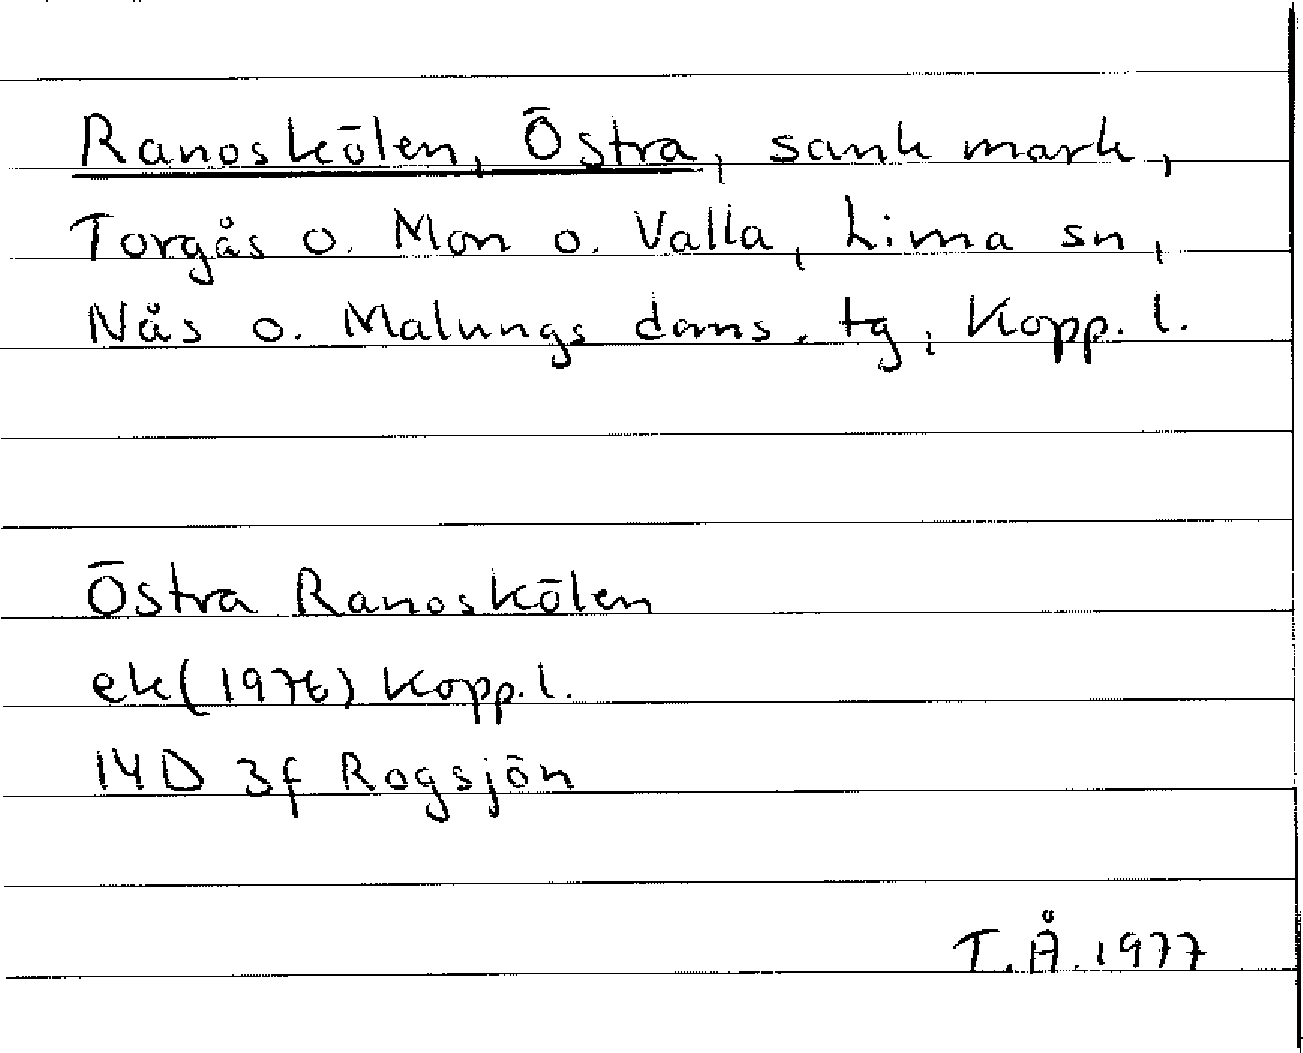 Ranoskölen, Östra, sank mark,
Torgås o. Mon o. Valla, Lima sn,
Nås o. Malungs doms. tg, Kopp. l.
Östra Ranoskölen
ek(1976) Kopp. l.
14D 3f Rogsjön
T.Å. 1977